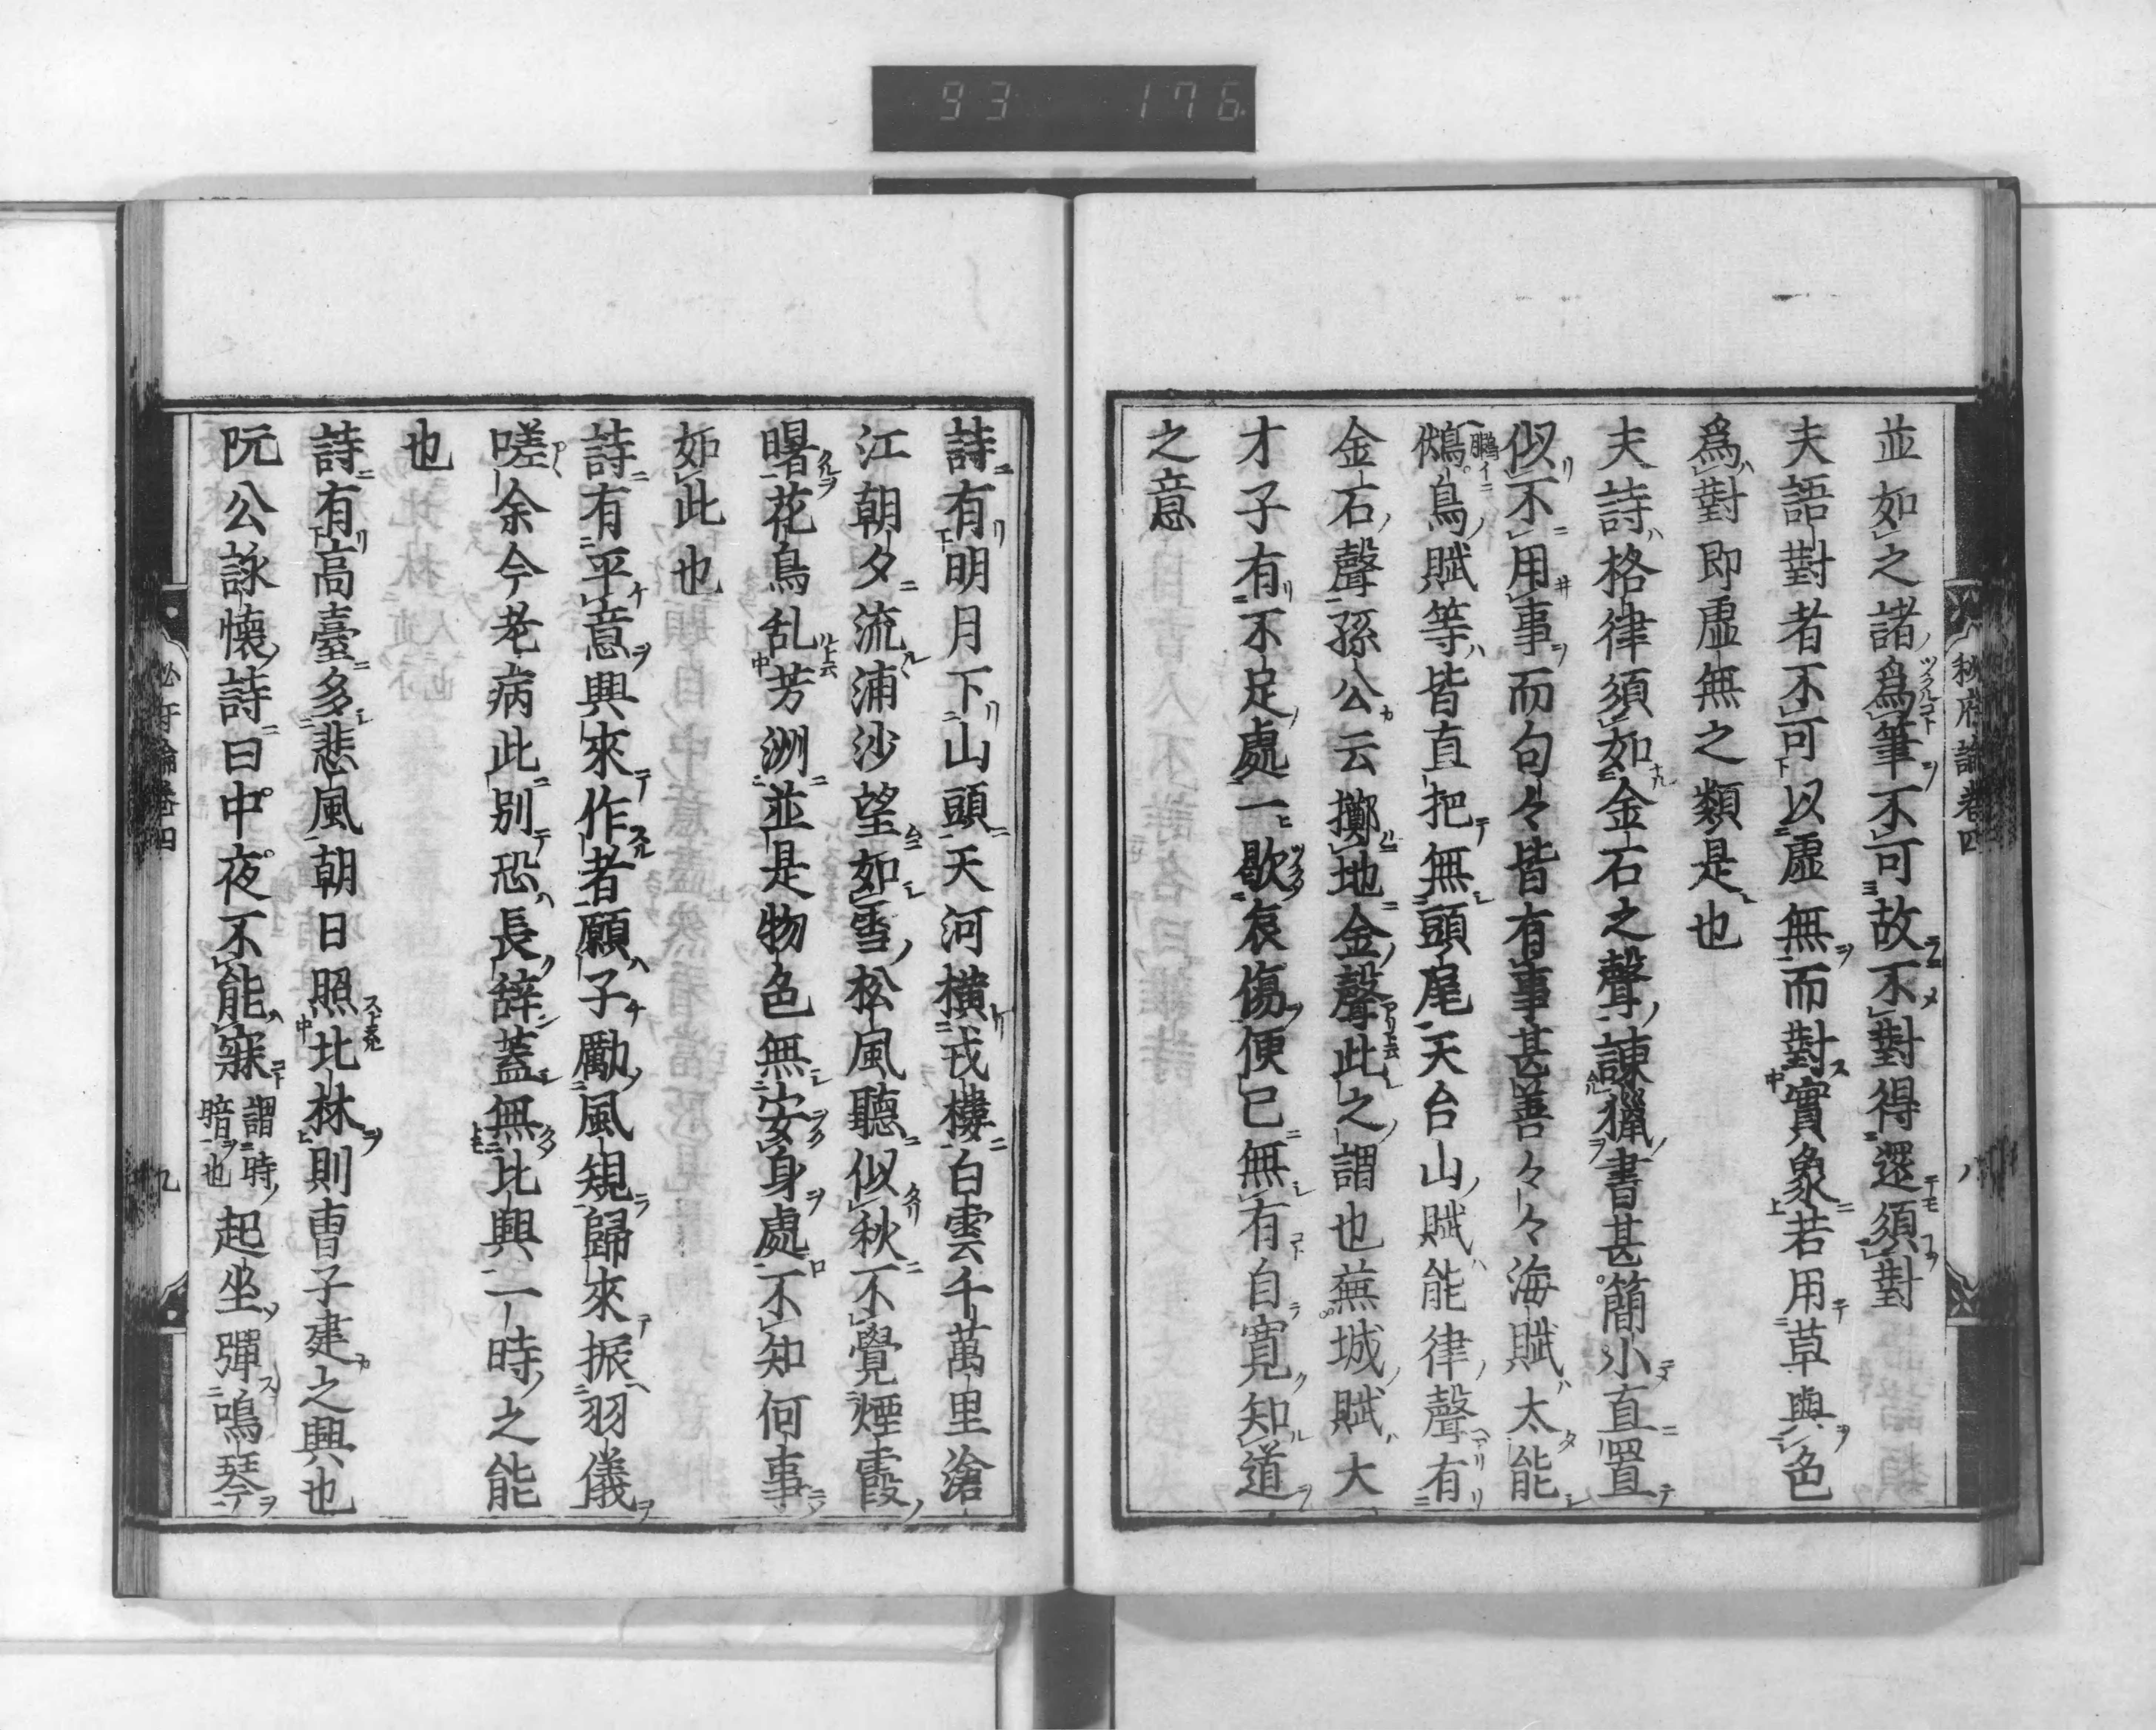 93 176
秘府論卷四 八
並如之諸爲筆不可故不對得還須對
夫語對者不可以虛無而對實象若用草與色
爲對即虛無之類是也
夫詩格律須如金石之聲諌獵書甚簡小直置
似不用事而句々皆有事甚善々々海賦太能
鵂鳥賦等皆直把無頭尾天台山賦能律聲有
金石聲孫公云擲地金聲此之謂也蕪城賦大
才子有不足處一歇哀傷便已無有自寛知道
之意
詩有明月下山頭天河横戎樓白雲千萬里滄
江朝夕流浦沙望如雪松風聽似秋不覺煙霞
曙花鳥乱芳洲並是物色無安身處不知何事
如此也
詩有平意興來作者願子勵風規歸來振羽儀
嗟余今老病此別恐長辞蓋無比興一時之能
也
詩有高臺多悲風朝日照北林則曺子建之興也
阮公詠懷詩曰中夜不能寐謂時暗也起坐彈鳴琴
九